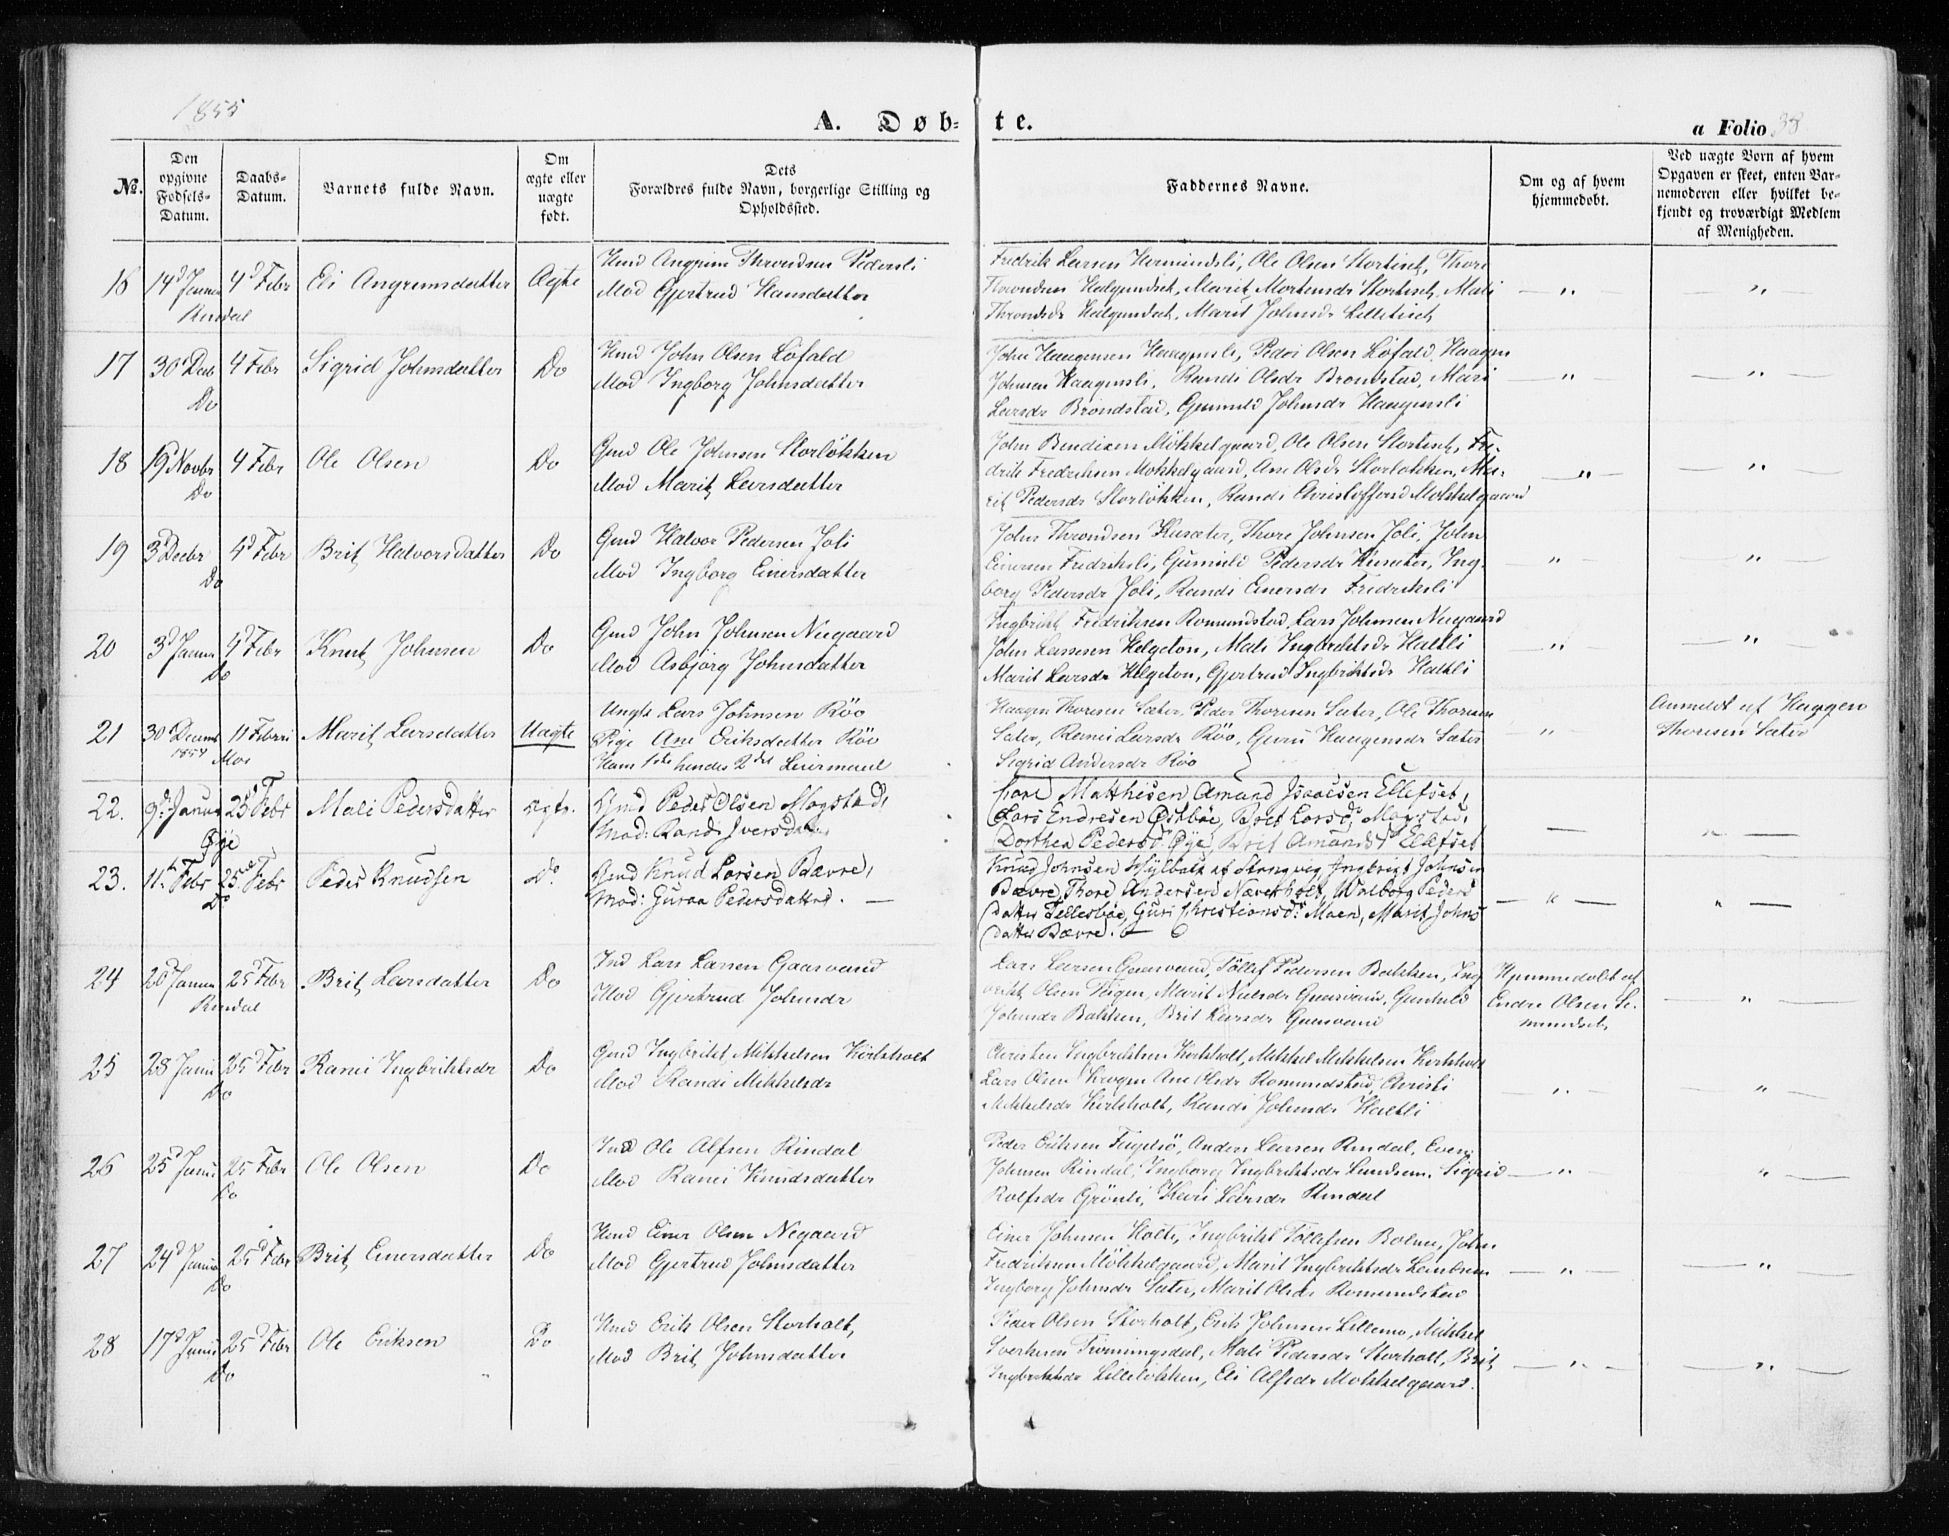 1855
A. Døbte.
a Folio 38
No.
Den opgivne Fødsels-Datum.
Daabs-Datum.
Barnets fulde Navn.
Om ægte eller uægte født.
Dets Forældres fulde Navn, borgerlige Stilling og Opholdssted.
Faddernes Navne.
Om og af hvem hjemmedøbt.
Ved uægte Børn af hvem Opgaven er skeet, enten Barnemoderen eller hvilket bekjendt og troværdigt Medlem af Menigheden.
16 14d Januar 4d Febr Eli Angrimsdatter Ægte
Rindal
Gmd Angrim Throndsen Pedersli
Mod Gjertrud Hansdatter
Fredrik Larsen Hermundsli, Ole Olsen Stortiset, Thore
Throndsen Halgundset, Marit Mortensdr Stortiset, Mali
Thronsdr Halgundset, Marit Johnsdr Lilletiset
17 30 Decb 4 Febr Sigrid Johnsdatter Do
Do
Gmd John Olsen Løfald
Mod Ingborg Johnsdatter
John Haagensen Haagensli, Peder Olsen Løfald, Haagen
Johnsen Haagensli, Randi Olsdr Brøndstad, Mari
Larsdr Brøndstad, Gunnild Johnsdr Haagensli
18 19 Novbr 4 Febr Ole Olsen Do
Do
Gmd Ole Johnsen Storløkken
Mod Marit Larsdatter
John Bendixen Møkkelgaard, Ole Olsen Stortiset, Fre-
drik Fredriksen Møkkelgaard, Ane Olsdr Storløkken, Ma-
rit Pedersdr Storløkken, Randi Christoffersd Møkkelgaard
19 3d Decbr 4d Febr Brit Halvorsdatter Do
Do
Gmd Halvor Pedersen Joli
Mod Ingborg Einersdatter
John Throndsen Kusæter, Thore Johnsen Joli, John
Einersen Fredriksli, Gunnild Pedersdr Kusæter, Ing-
borg Pedersdr Joli, Randi Einersdr Fredriksli
20 3d Januar 4d Febr Knut Johnsen Do
Do
Gmd John Johnsen Negaard
Mod Asbjørg Johnsdatter
Ingbrikt Fredriksen Romundstad, Lars Johnsen Negaard
John Larsen Helgeton, Mali Ingbriktsdr Haltli
Marit Larsdr Helgeton, Gjertrud Ingbriktsdr Haltli
21 30 Decemb 11 Febru Marit Larsdatter Uægte
1854 Moe
Ungk Lars Johnsen Røe
Pige Ane Eriksdatter Røe
Hans 1ste hendes 2det Leiermaal
Haagen Thoresen Sæter, Peder Thoresen Sæter, Ole Thoresen
Sæter, Ranei Larsdr Røe, Guru Haagensdr Sæter
Sigrid Andersdr Røe
Anmeldt af Haagen
Thoresen Sæter
22. 9d Januar 25d Febr Mali Pedersdatter ægte.
Øye
Gmd Peder Olsen Mogstad,
Mod: Randi Iversdatter
Lars Endresen Østbøe, Brit Larsd: Mogstad,
Dorthea Pedersd: Øye, Brit Amundsd Ellefset
23. 11te Febr 25de Febr Peder Knudsen Do
Do
Gmd Knud Larsen Bævre,
Mod: Guraa Pedersdatter. —
Bævre, Thore Andersen Næverholt, Walborg Peders
datter Tellesbøe, Guri Christiansd: Moen, Marit Johns
datter Bævre.
24 20d Januar 25d Febr Brit Larsdatter Do
Rindal
Ind Lars Larsen Gaasvand
Mod Gjertrud Johnsdr
Lars Larsen Gaasvand, Tøllef Pedersen Bakken, Ing
brikt Olsen Teigen, Marit Nielsdr Gaasvand, Gunhild
Johnsdr Bakken, Brit Larsdr Gaasvand
Hjemmedøbt af
Endre Olsen Se-
mundset
25 28 Janu 25d Febr Ranei Ingbriktsdr Do
Do
Gmd Ingbrikt Mikkelsen Kirkholt
Mod Randi Mikkelsdr
Christen Ingbriktsen Kirkholt, Mikkel Mikkelsen Kirkholt
Lars Olsen Krogen Ane Olsdr Romundstad, Christi
Mikkelsdr Kirkholt, Randi Johnsdr Haltli
26 25d Janu 25 Febr Ole Olsen Do
Do
Ind Ole Alfsen Rindal
Mod Ranei Knudsdatter
Johnsen Rindal, Ingborg Ingbriktsdr Landsem, Sigrid
Rolfsdr Grønli, Kari Larsdr Rindal
27 24d Janu 25d Febr Brit Einersdatter Do
Do
Gmd Einer Olsen Negaard
Mod Gjertrud Johnsdatter
Einer Johnsen Holte, Ingbrikt Tøllefsen Bolme, John
Fredriksen Møkkelgaard, Marit Ingbriktsdr Landsem
Ingborg Johnsdr Sæter, Marit Olsdr Romundstad
28 17d Janu 25d Febr Ole Eriksen Do
Do
Gmd Erik Olsen Storholt,
Mod Brit Johnsdatter
Peder Olsen Storholt, Erik Johnsen Lillemo, Mikkel
Sverksen Tørningsdal, Mali Pedersdr Storholt, Brit
Ingbriktsdr Lilleløkken, Eli Alfsdr Møkkelgaard.